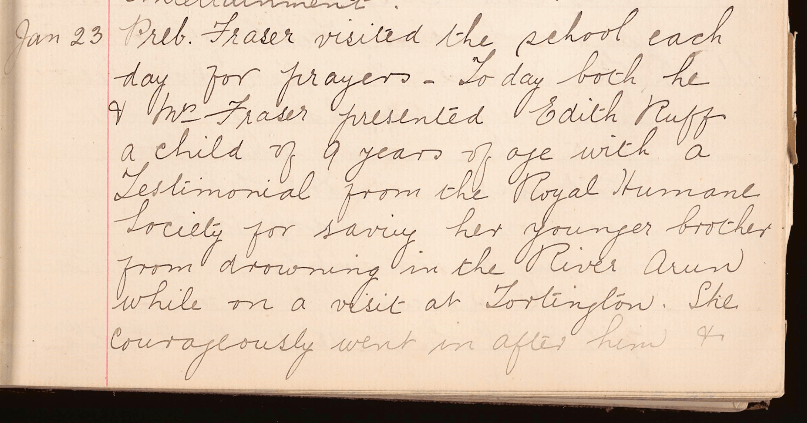 entertainment.
Jan 23 Preb. Fraser visited the school each
day for prayers - Today both he
& Mrs Fraser presented Edith Ruff
a child of 9 years of age with a
Testimonial from the Royal Humane
Society for saving her younger brother
from drowning in the River Arun
while on a visit at Tortington. She
courageously went in after him &